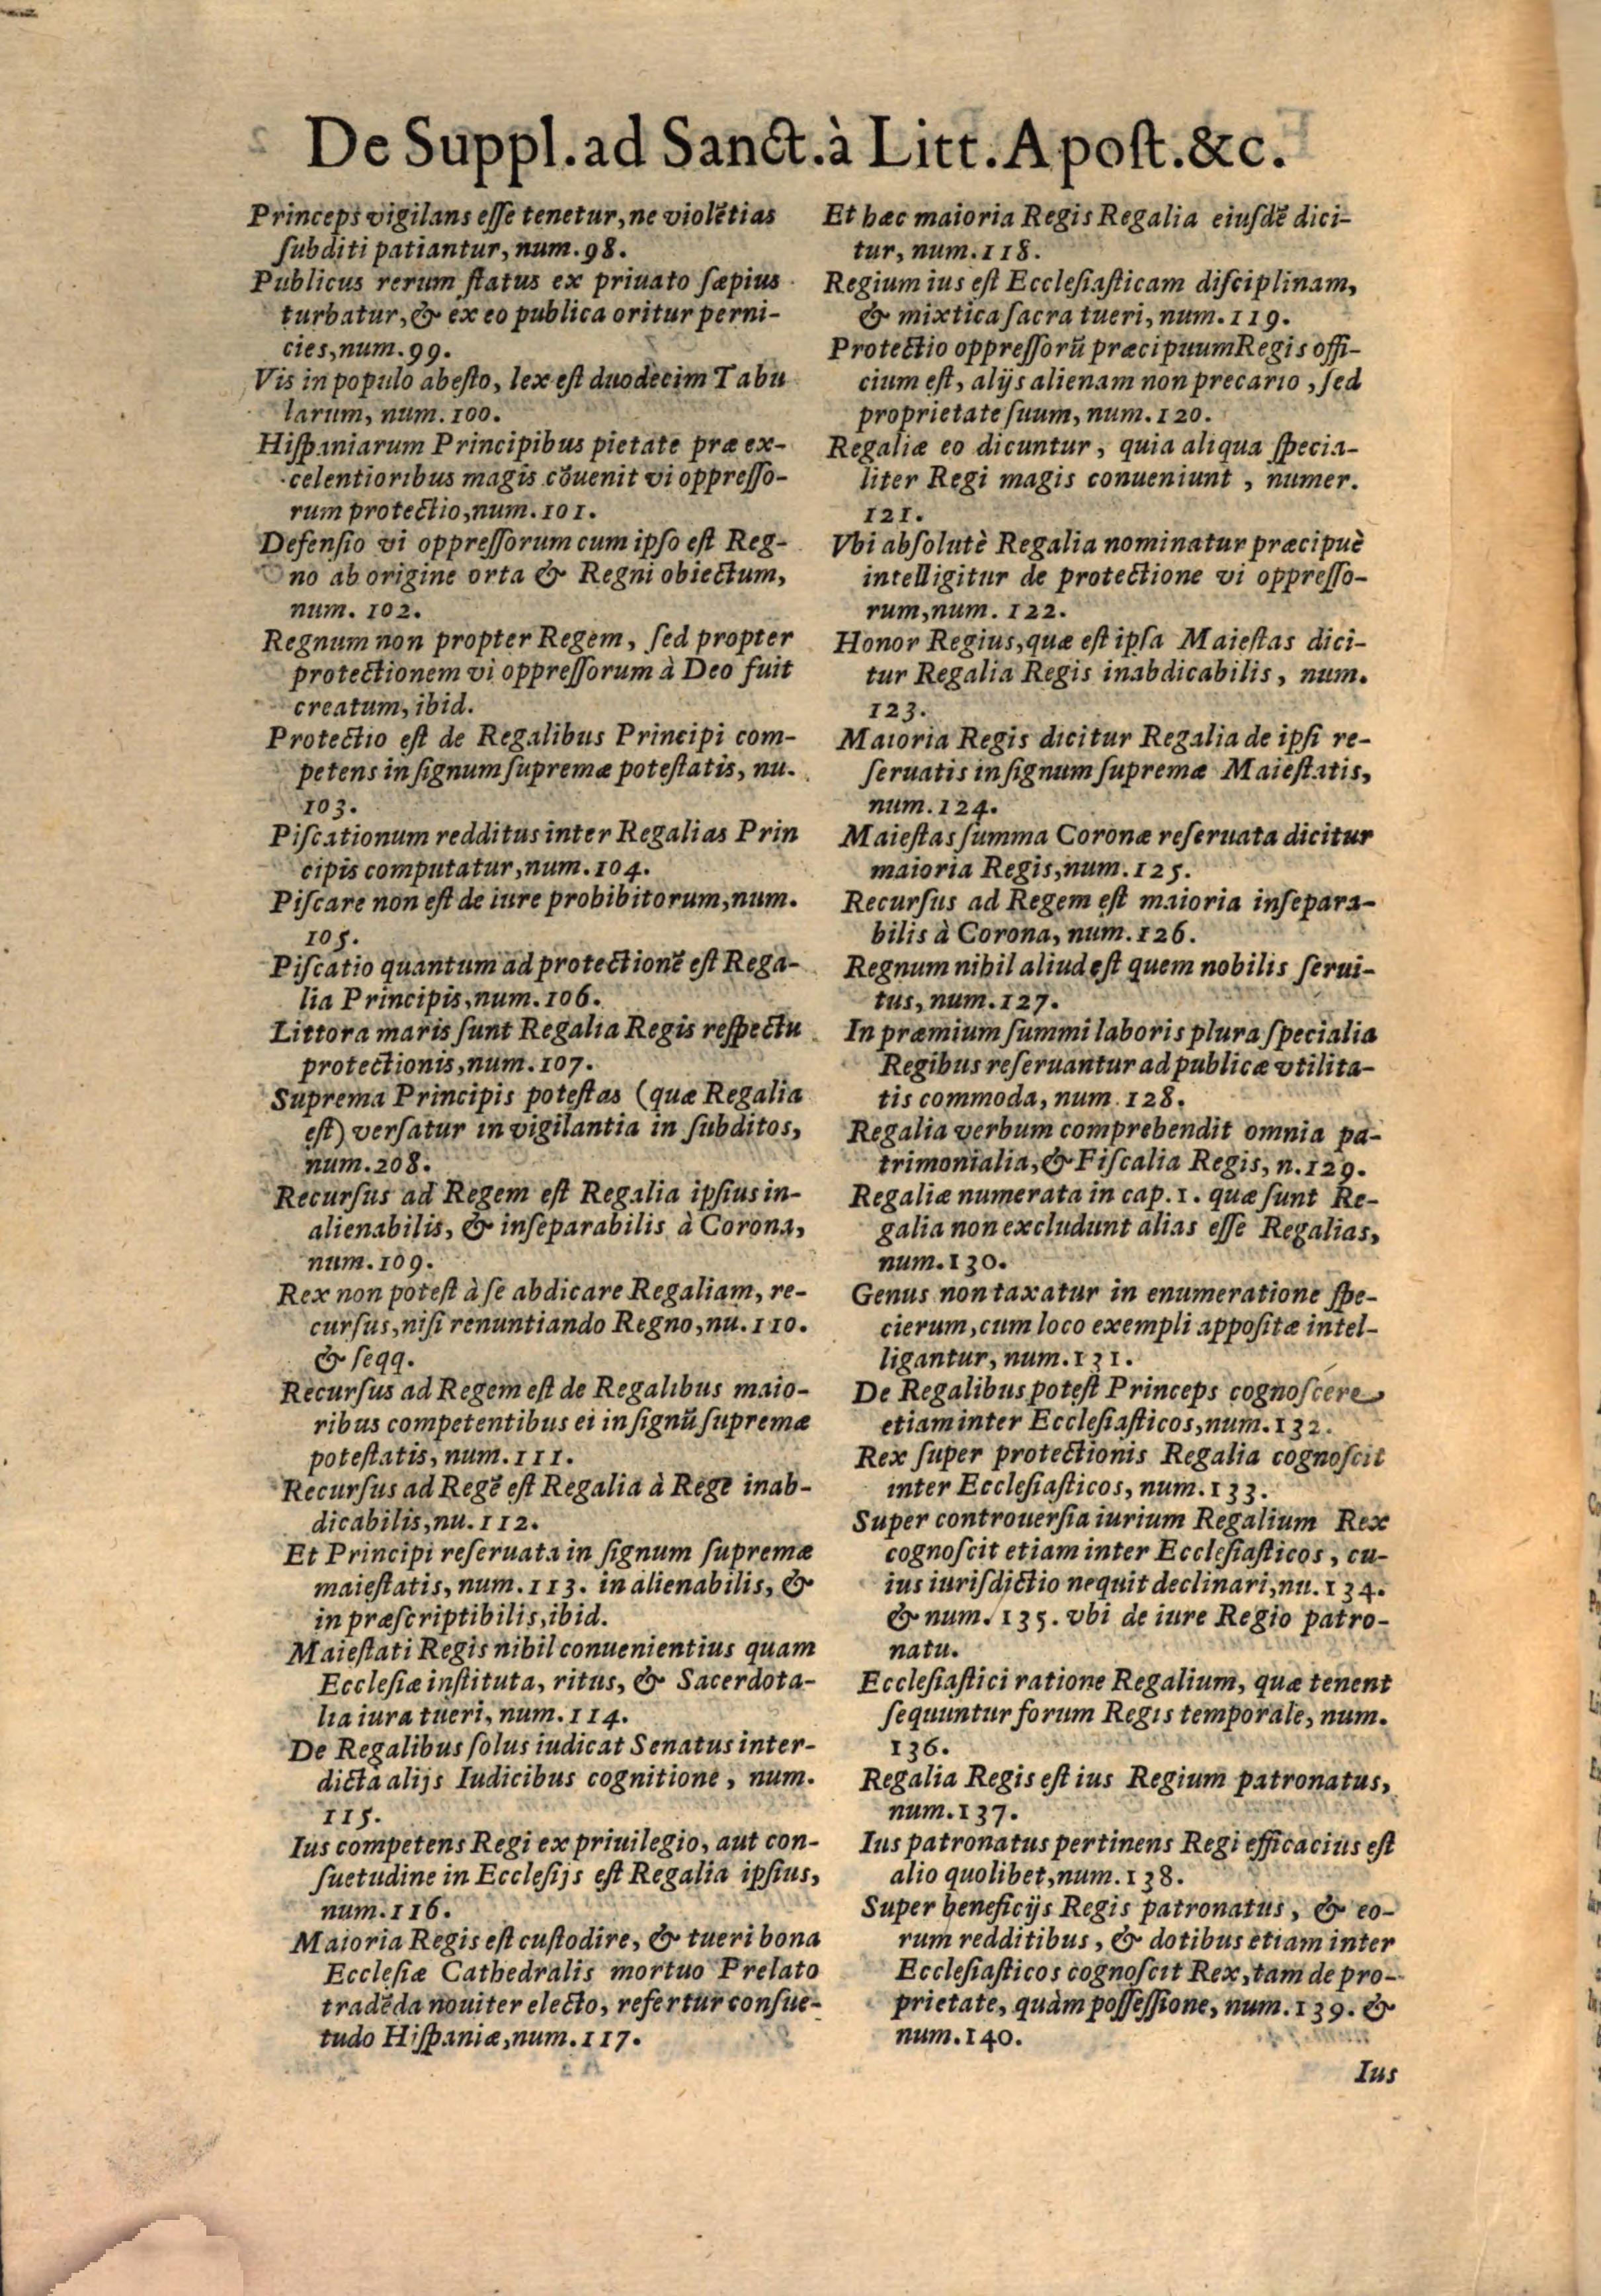 De Suppl. ad Sanct. à Litt. Apost. &c.
Princeps vigilans esse tenetur, ne violētias
subditi patiantur, num. 98.
Publicus rerum status ex priuato sæpius
turbatur, & ex eo publica oritur perni-
cies, num. 99.
Vis in populo abesto, lex est duodecim Tabu
larum, num. 100.
Hispaniarum Principibus pietate præ ex-
celentioribus magis cōuenit vi oppresso-
rum protectio, num. 101.
Defensio vi oppressorum cum ipso est Reg-
no ab origine orta & Regni obiectum,
num. 102.
Regnum non propter Regem, sed propter
protectionem vi oppressorum à Deo fuit
creatum, ibid.
Protectio est de Regalibus Principi com-
petens in signum supremæ potestatis, nu.
103.
Piscationum redditus inter Regalias Prin
cipis computatur, num. 104.
Piscare non est de iure prohibitorum, num.
105.
Piscatio quantum ad protectionē est Rega-
lia Principis, num. 106.
Littora maris sunt Regalia Regis respectu
protectionis, num. 107.
Suprema Principis potestas (quæ Regalia
est) versatur in vigilantia in subditos,
num. 208.
Recursus ad Regem est Regalia ipsius in-
alienabilis, & inseparabilis à Corona,
num. 109.
Rex non potest à se abdicare Regaliam, re-
cursus, nisi renuntiando Regno, nu. 110.
& seqq.
Recursus ad Regem est de Regalibus maio-
ribus competentibus ei in signū supremæ
potestatis, num. 111.
Recursus ad Regē est Regalia à Rege inab-
dicabilis, nu. 112.
Et Principi reseruata in signum supremæ
maiestatis, num. 113. in alienabilis, &
in præscriptibilis, ibid.
Maiestati Regis nihil conuenientius quam
Ecclesiæ instituta, ritus, & Sacerdota-
lia iura tueri, num. 114.
De Regalibus solus iudicat Senatus inter-
dicta alijs Iudicibus cognitione, num.
115.
Ius competens Regi ex priuilegio, aut con-
suetudine in Ecclesijs est Regalia ipsius,
num. 116.
Maioria Regis est custodire, & tueri bona
Ecclesiæ Cathedralis mortuo Prelato
tradēda nouiter electo, refertur consue-
tudo Hispaniæ, num. 117.
Et hæc maioria Regis Regalia eiusdē dici-
tur, num. 118.
Regium ius est Ecclesiasticam disciplinam,
& mixtica sacra tueri, num. 119.
Protectio oppressorū præcipuum Regis offi-
cium est, alijs alienam non precario, sed
proprietate suum, num. 120.
Regaliæ eo dicuntur, quia aliqua specia-
liter Regi magis conueniunt, numer.
121.
Vbi absolutè Regalia nominatur præcipuè
intelligitur de protectione vi oppresso-
rum, num. 122.
Honor Regius, quæ est ipsa Maiestas dici-
tur Regalia Regis inabdicabilis, num.
123.
Maioria Regis dicitur Regalia de ipsi re-
seruatis in signum supremæ Maiestatis,
num. 124.
Maiestas summa Coronæ reseruata dicitur
maioria Regis, num. 125.
Recursus ad Regem est maioria insepara-
bilis à Corona, num. 126.
Regnum nihil aliud est quem nobilis serui-
tus, num. 127.
In præmium summi laboris plura specialia
Regibus reseruantur ad publicæ vtilita-
tis commoda, num. 128.
Regalia verbum comprehendit omnia pa-
trimonialia, & Fiscalia Regis, n. 129.
Regaliæ numerata in cap. 1. quæ sunt Re-
galia non excludunt alias esse Regalias,
num. 130.
Genus non taxatur in enumeratione spe-
cierum, cum loco exempli appositæ intel-
ligantur, num. 131.
De Regalibus potest Princeps cognoscere
etiam inter Ecclesiasticos, num. 132.
Rex super protectionis Regalia cognoscit
inter Ecclesiasticos, num. 133.
Super controuersia iurium Regalium Rex
cognoscit etiam inter Ecclesiasticos, cu-
ius iurisdictio nequit declinari, nu. 134.
& num. 135. vbi de iure Regio patro-
natu.
Ecclesiastici ratione Regalium, quæ tenent
sequuntur forum Regis temporale, num.
136.
Regalia Regis est ius Regium patronatus,
num. 137.
Ius patronatus pertinens Regi efficacius est
alio quolibet, num. 138.
Super beneficijs Regis patronatus, & eo-
rum redditibus, & dotibus etiam inter
Ecclesiasticos cognoscit Rex, tam de pro-
prietate, quàm possessione, num. 139. &
num. 140.
Ius